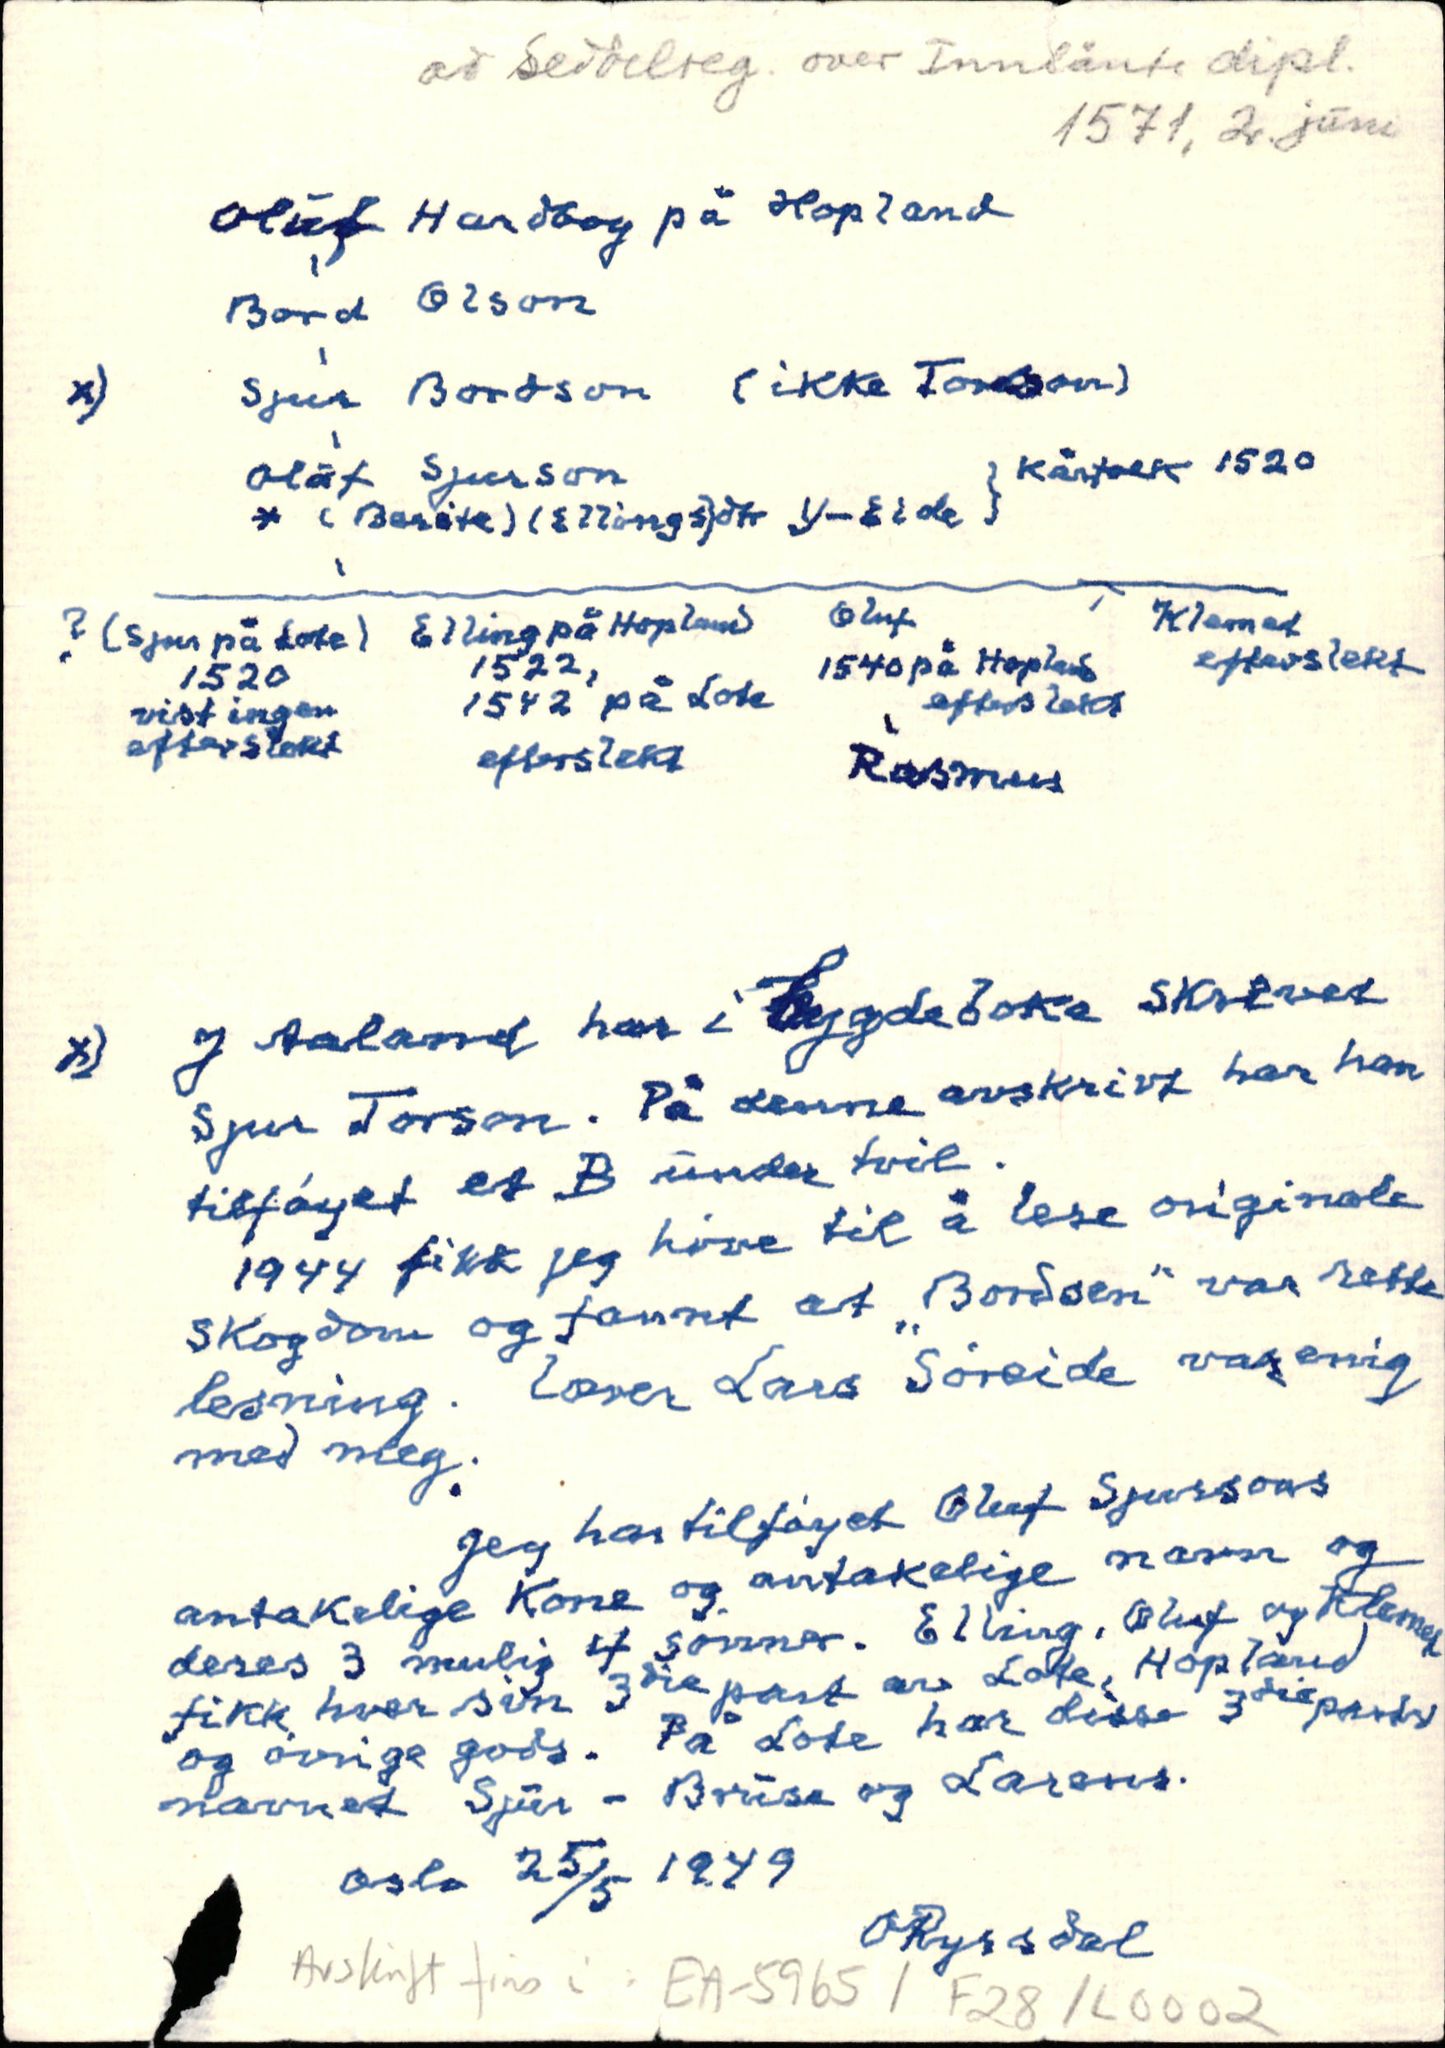 ad Seddelreg. over Innlånte dipl.
1571, 2. juni
Oluf Hardbog på Hopland
Bård Olson
x) Sjur Bordson (ikke Tordson)
Olaf Sjurson
* (Berete) (Ellings)dtr Y-Eide } Kårfolk 1520
? (Sjur på Lote) Elling på Hopland Oluf Klemet
1520 1522, 1540 på Hopland efterslekt
vist ingen 1542 på Lote efterslekt
efterslekt efterslekt Rasmus
x) J Aaland har i bygdeboka skrevet
Sjur Torson. På denne avskrivt har han
tilføyet et B under tvil.
1944 fikk jeg höve til å lese originale
skogdom og fannt at "Bordsen" var rette
lesning. Lærer Lars Söreide var enig
med meg.
Jeg har tilføyet Oluf Sjursons
antakelige Kone og antakelige navn og
deres 3 mulig 4 sønner. Elling, Oluf og Klemet
fikk hver sin 3die part av Lote, Hopland
og øvrige gods. På Lote har disse 3die parts
navnet Sjur - Bruse og Larens.
Oslo 25/5 1949
O Ryssdal
Avskrift fins i: EA-5965 / F28 / L0002